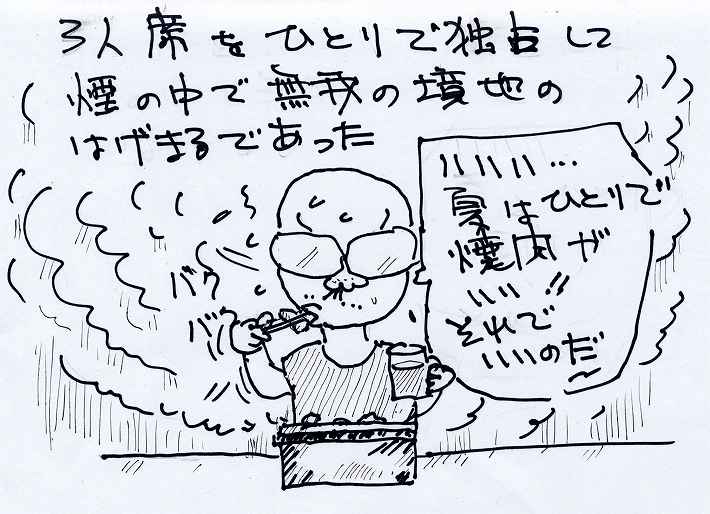 3人席をひとりで独占して
煙の中で無我の境地の
はげまるであった
いいいい…
夏はひとりで
焼肉が
いい!!
それで
いいのだ
バク
バク